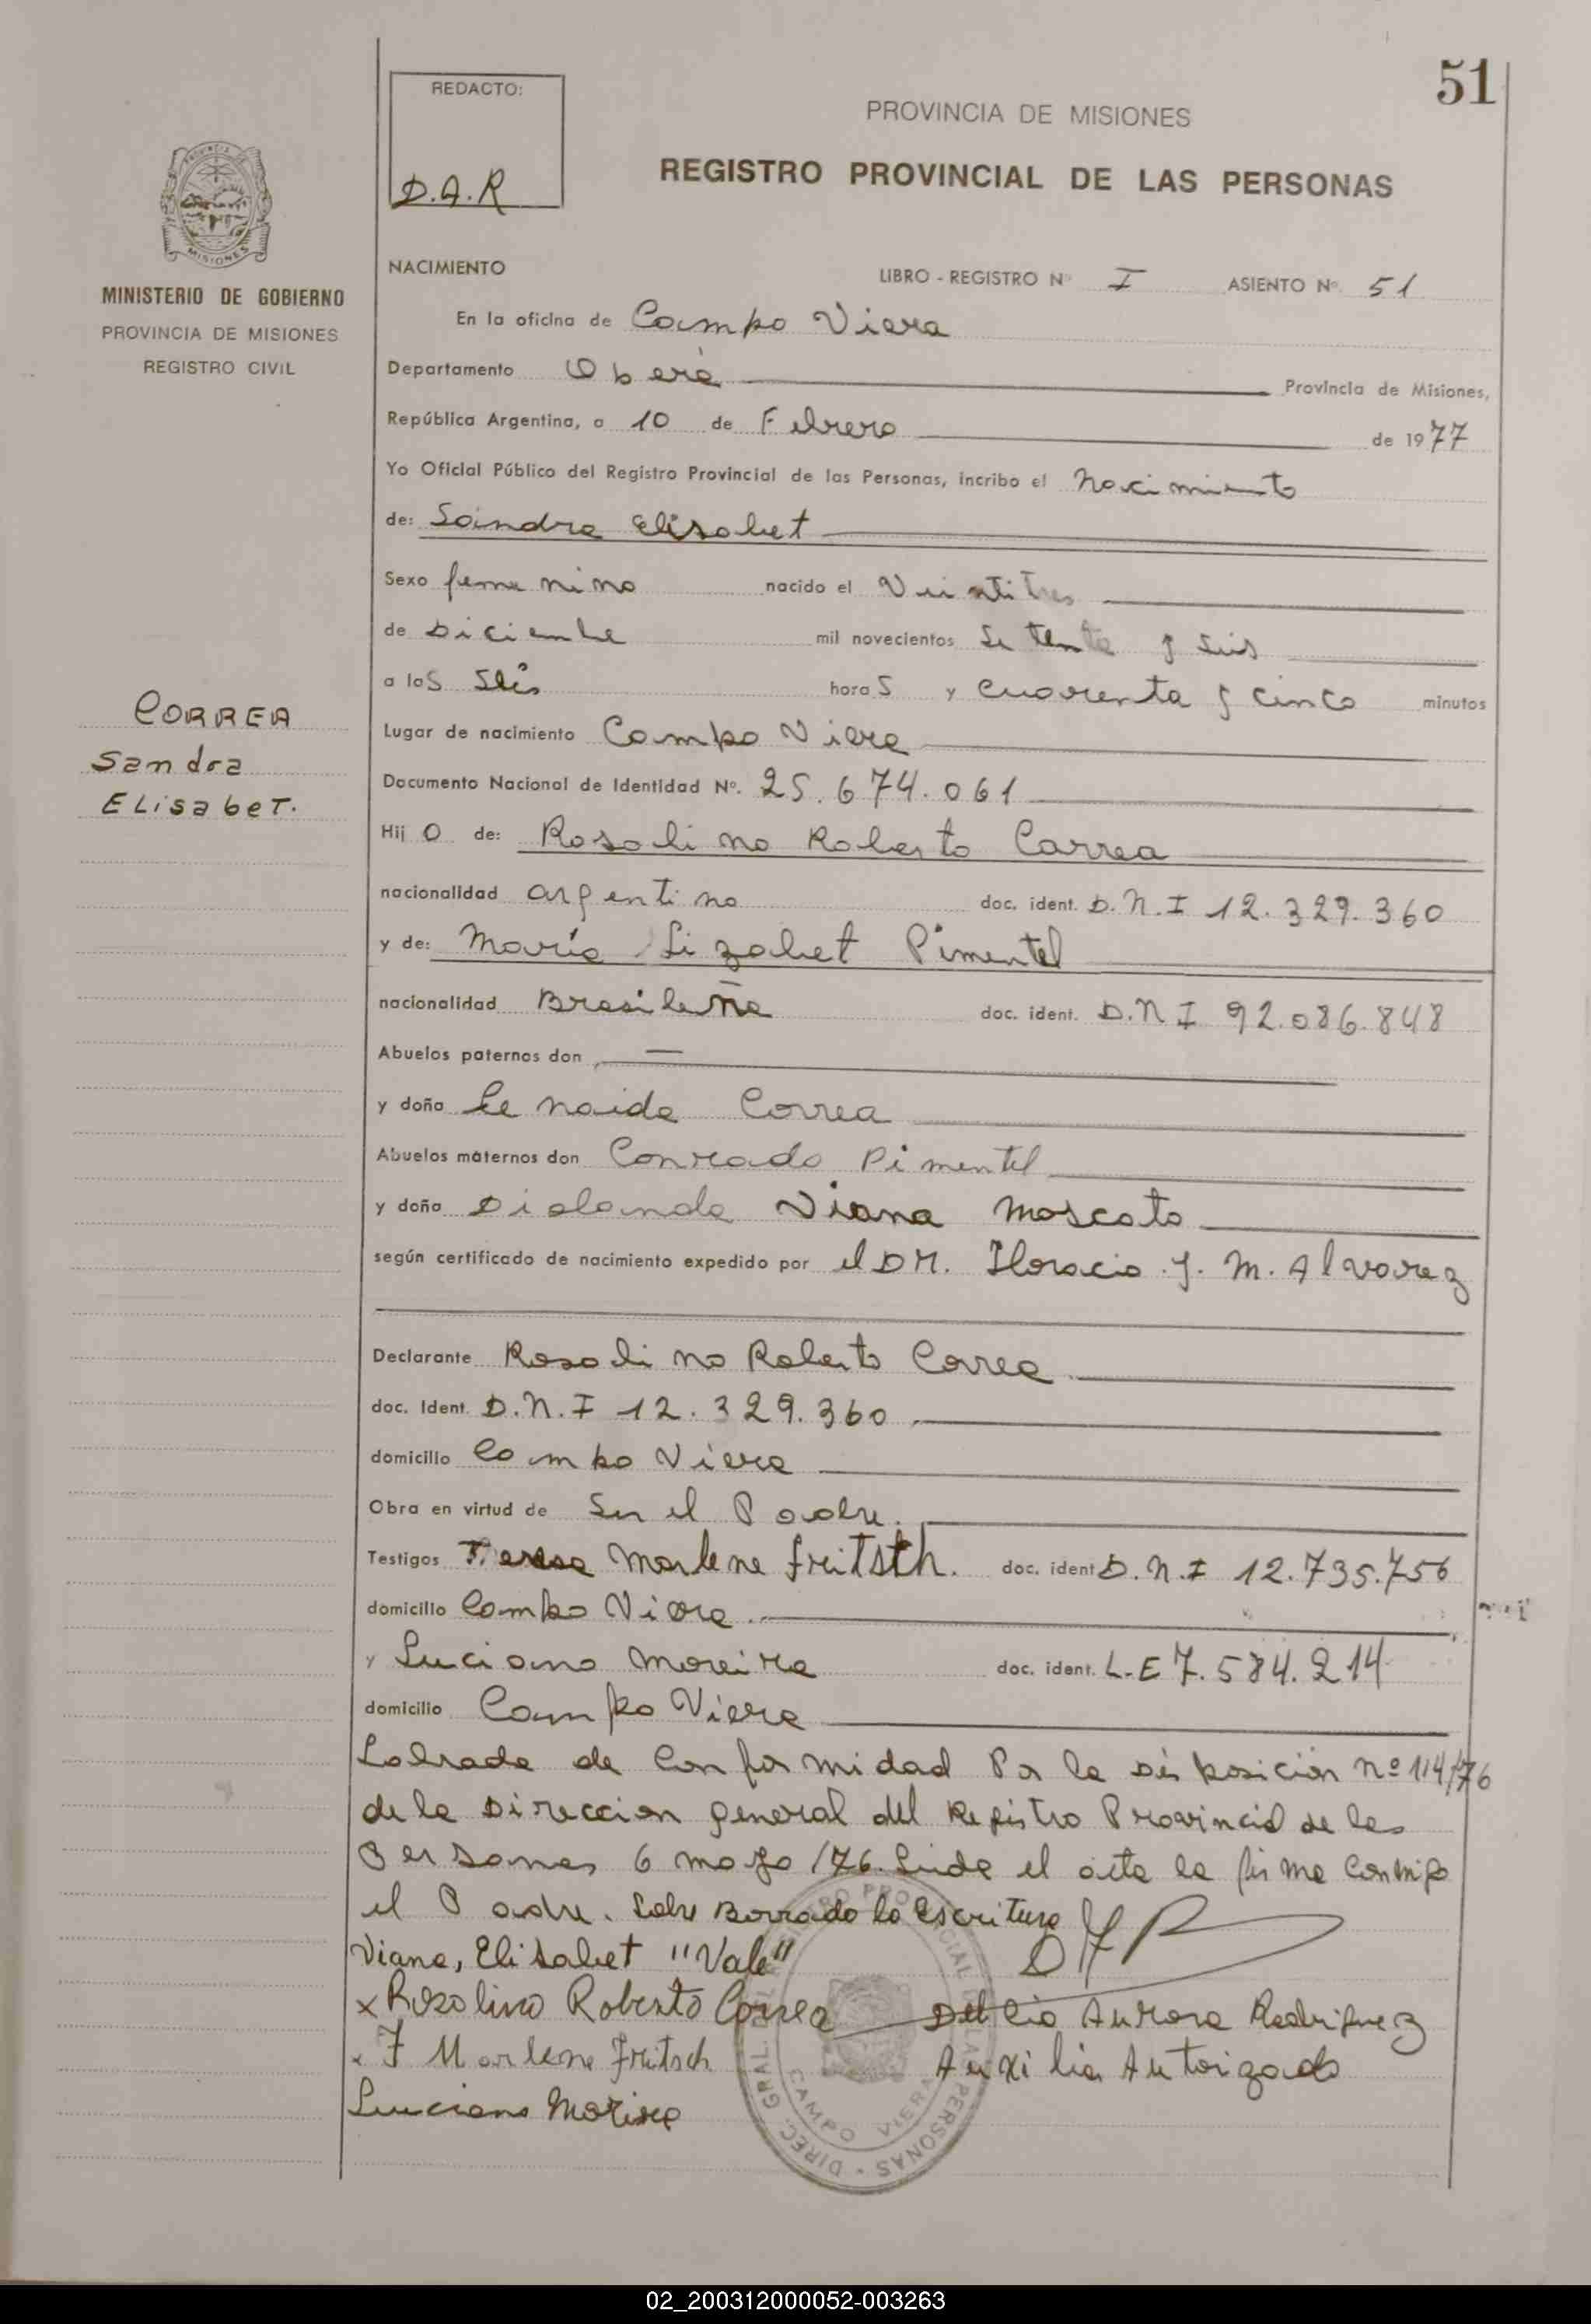 51
REDACTO:
D.A.R
PROVINCIA DE MISIONES
REGISTRO PROVINCIAL DE LAS PERSONAS
MINISTERIO DE GOBIERNO
PROVINCIA DE MISIONES
REGISTRO CIVIL
NACIMIENTO LIBRO - REGISTRO Nº I ASIENTO Nº 51
En la oficina de Campo Viera
Departamento Oberá Provincia de Misiones,
República Argentina, a 10 de Febrero de 1977
Yo Oficial Público del Registro Provincial de las Personas, incribo el nacimiento
de: Sandra Elisabet
Sexo femenino nacido el Veintitres
de Diciembre mil novecientos Setenta y seis
a las seis horas y cuarenta y cinco minutos
CORREA
Sandra
ELisabeT.
Lugar de nacimiento Campo Viera
Documento Nacional de Identidad Nº. 25.674.061
Hijo de: Rosalino Roberto Correa
nacionalidad argentino doc. ident. D.N.I 12.329.360
y de: María Lizabet Pimentel
nacionalidad Brasileña doc. ident. D.N.I 92.086.848
Abuelos paternos don —
y doña Correa
Abuelos maternos don Conrado Pimentel
y doña Diolanda Viana Moscato
según certificado de nacimiento expedido por el DR. Horacio J. M. Alvarez
Declarante Rosalino Roberto Correa
doc. Ident. D.N.I 12.329.360
domicilio Campo Viera
Obra en virtud de Ser el Padre.
Testigos Teresa Marlene Fritsch. doc. ident D.N.I 12.735.756
domicilio Campo Viera.
y Luciano Moreira doc. ident. L.E 7.584.214
domicilio Campo Viera
Labrada de Conformidad Por la Disposición nº 114/76
de la Direccion general del Registro Provincial de las
Personas 6 mayo /76. Leida el acta la firma Conmigo
el Padre. Sobre Borrado la Escritura
Viana, Elisabet "Vale"
x Rosolino Roberto Correa
Aurora Rodriguez
x T Marlene Fritsch
Auxiliar Autorizado
Luciano Moriera
DIREC. GRAL. REGISTRO PROVINCIAL PERSONAS
CAMPO VIERA
02_200312000052-003263